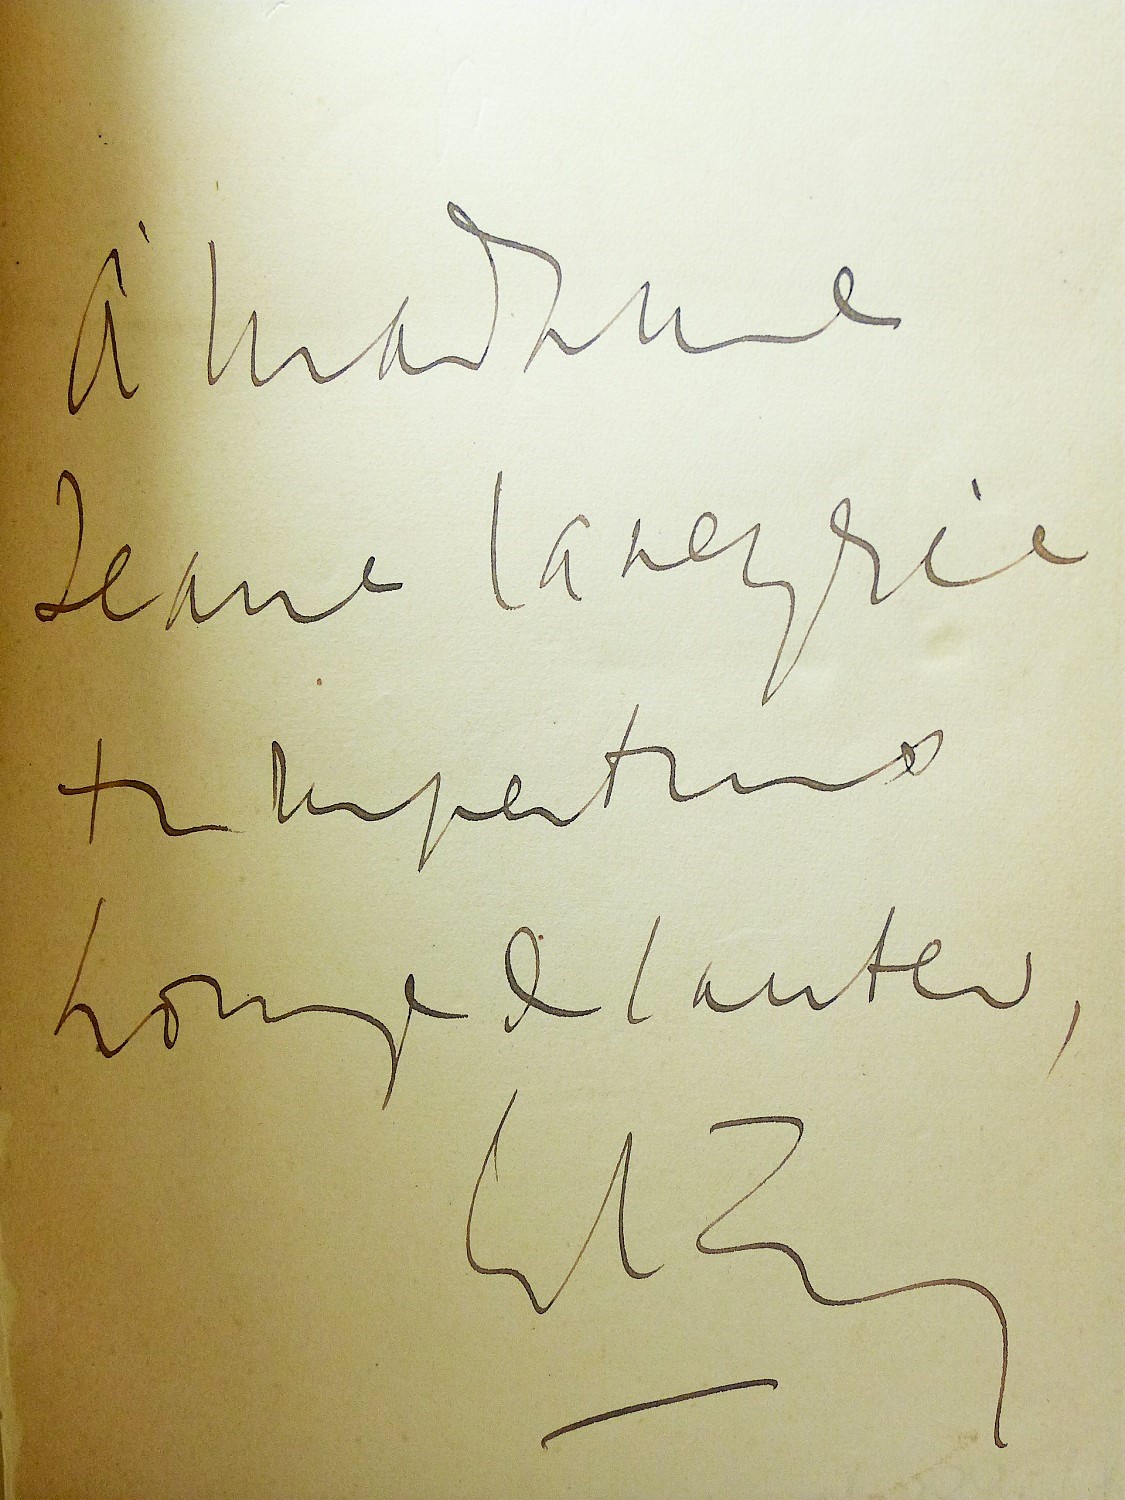 à Madame
Jeanne
très respectueux
hommage de l'auteur,